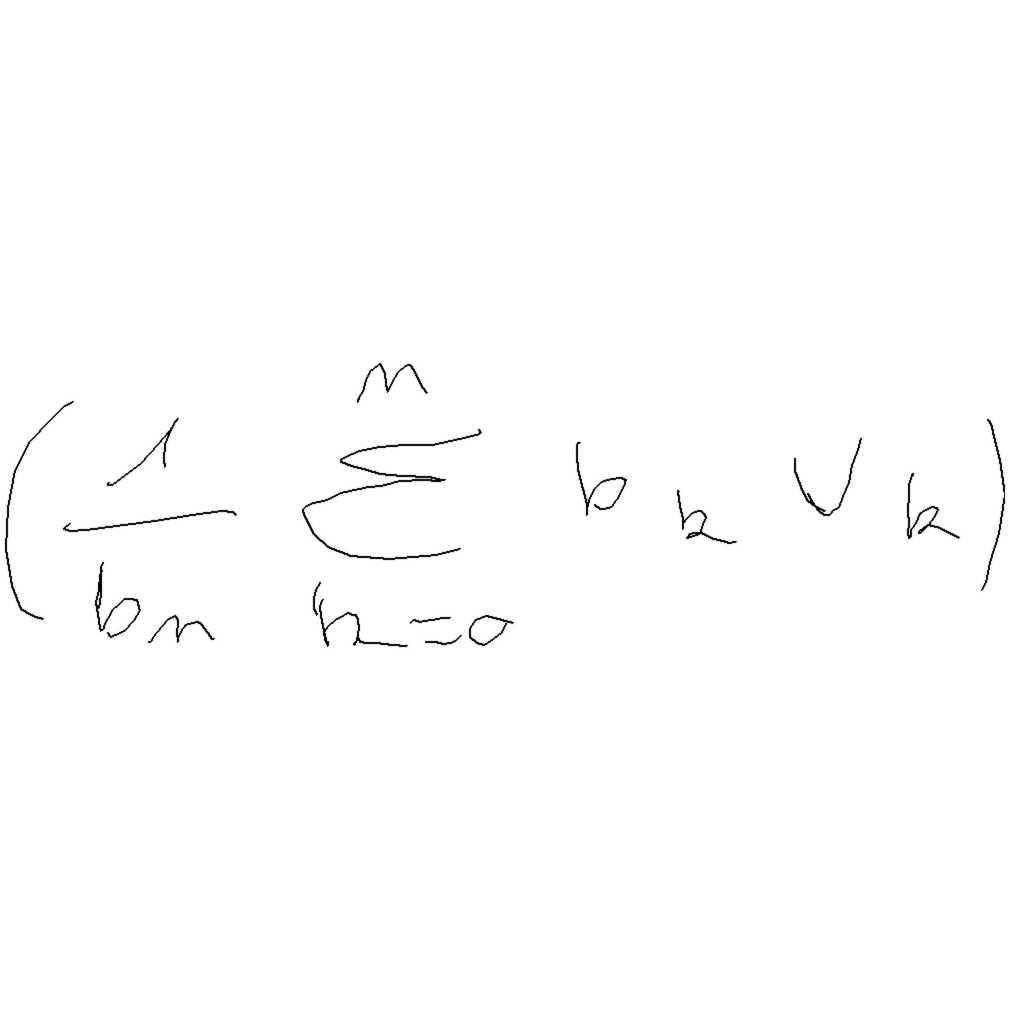 \left( \frac{1}{b_n} \sum_{k=0}^{n} b_k v_k \right)